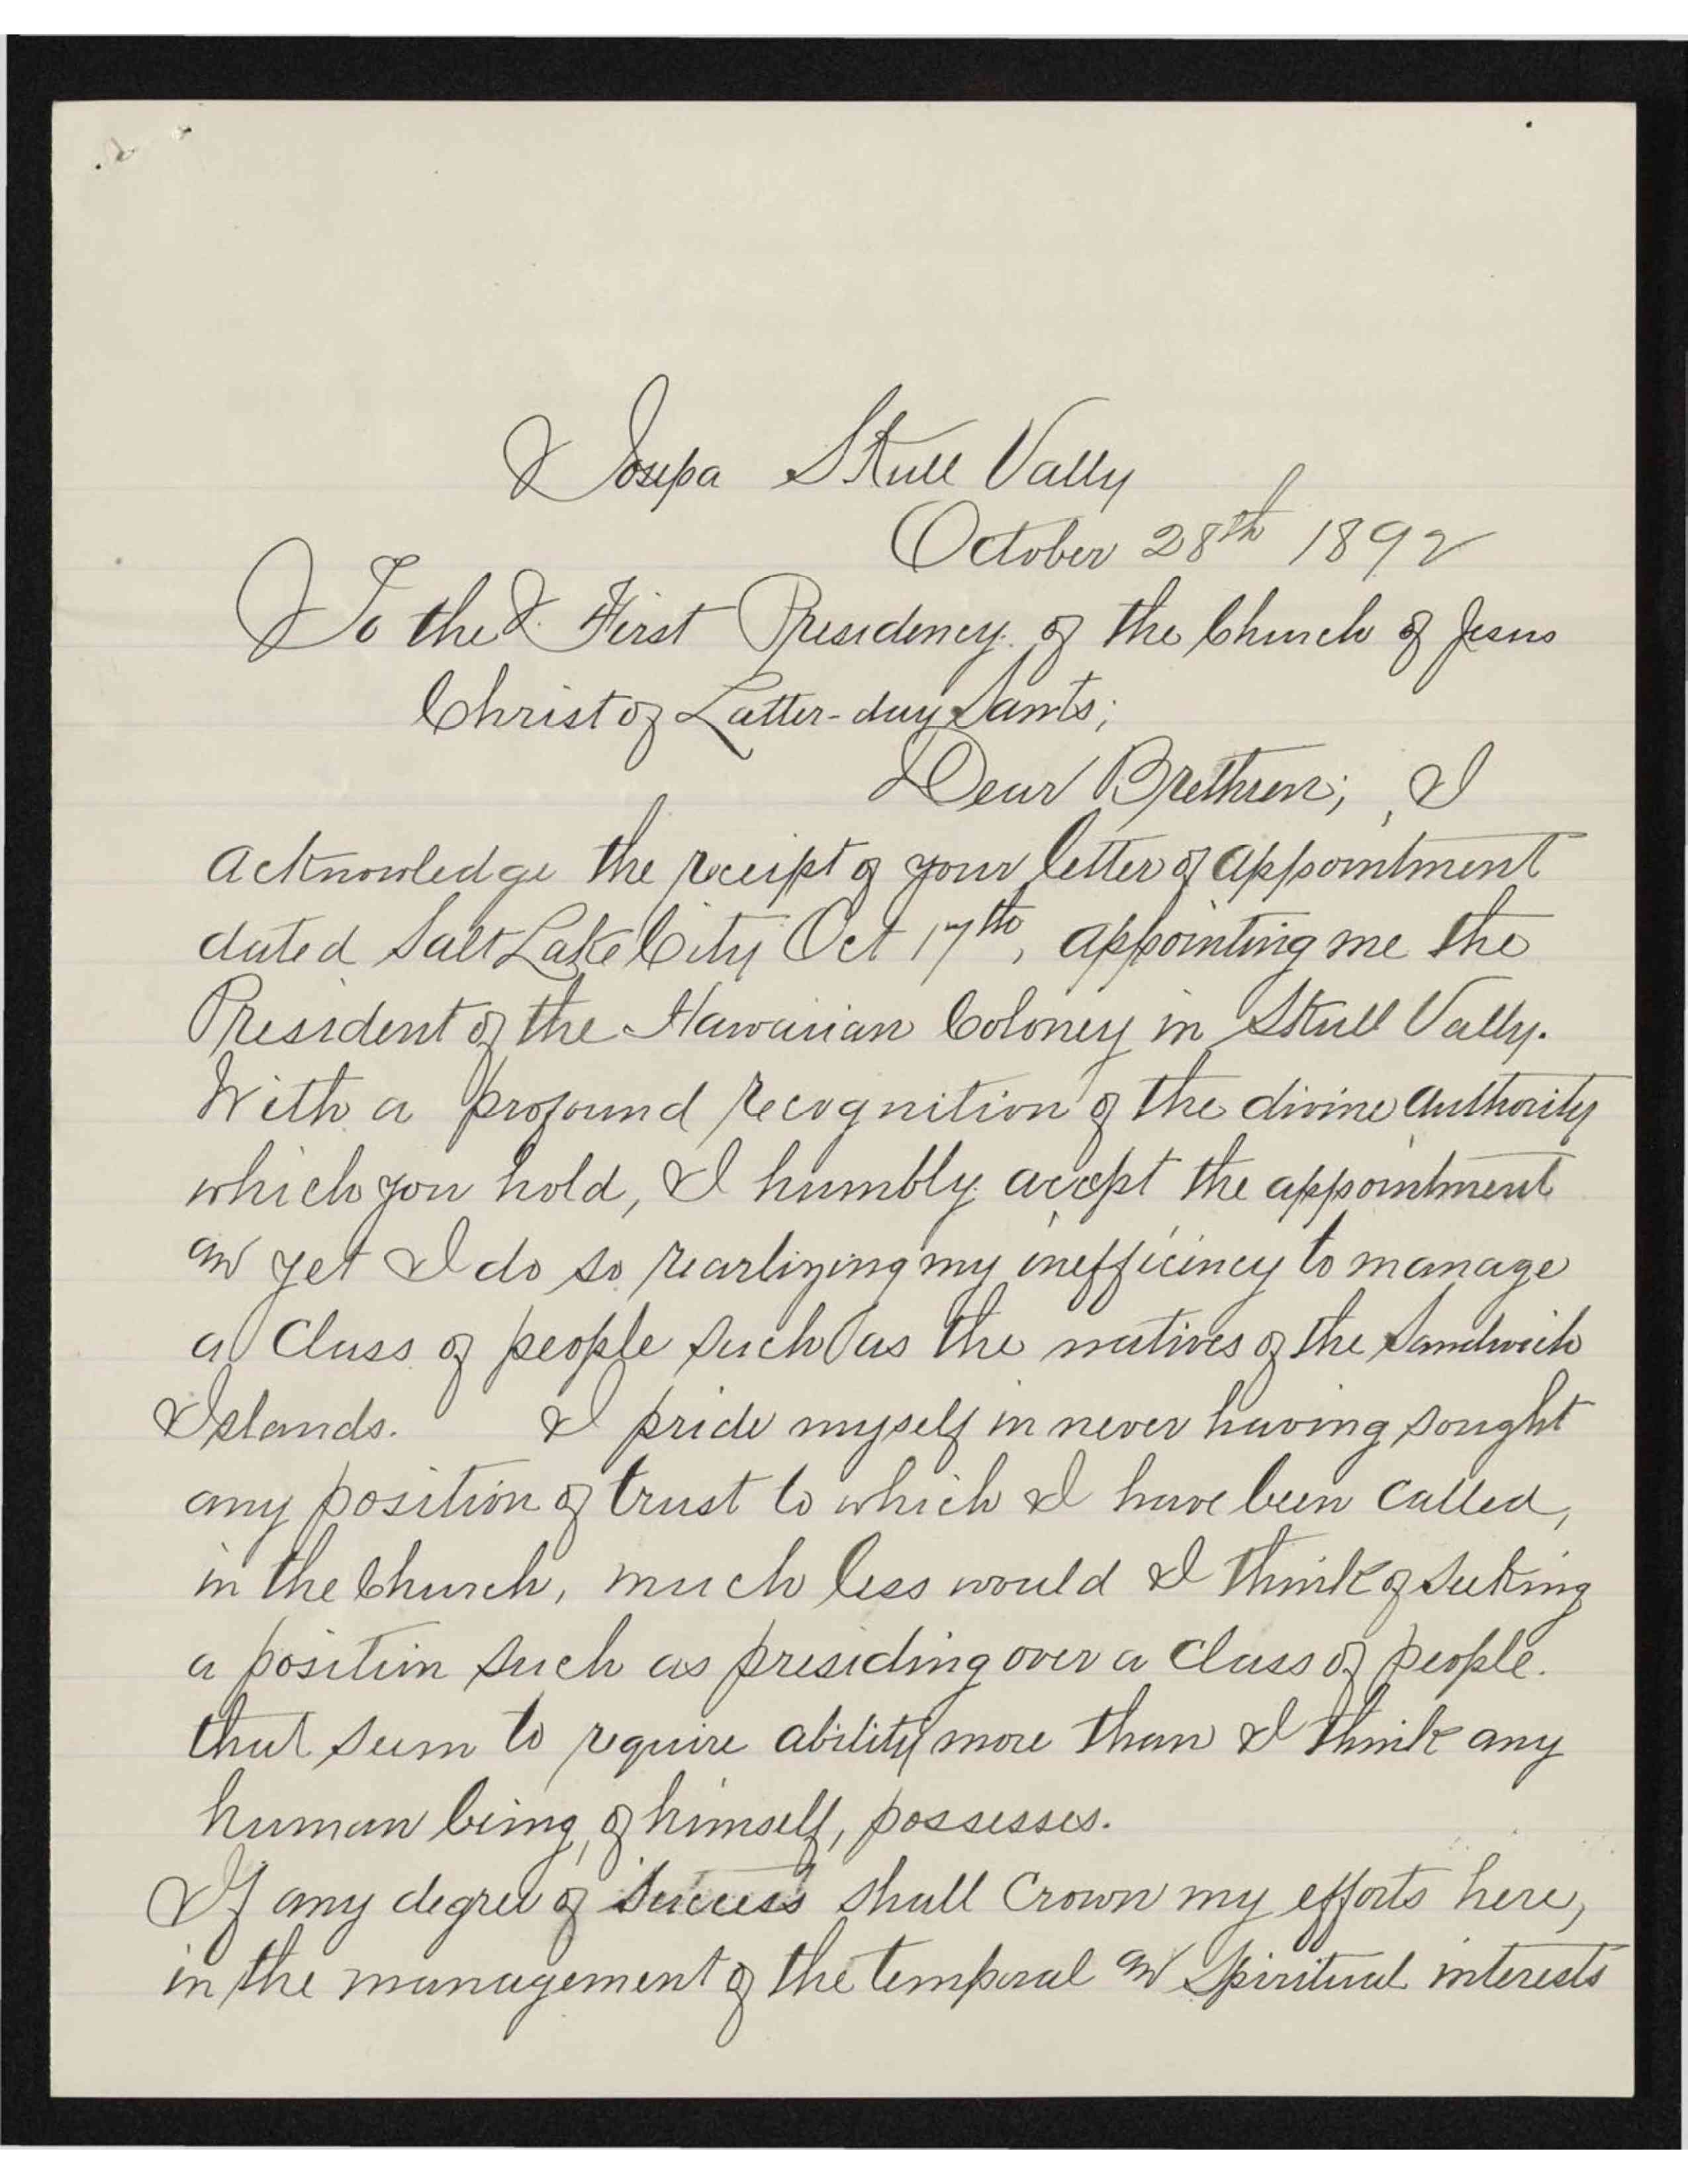 Iosepa Skull Vally
October 28th 1892
To the First Presidency of the Church of Jesus
Christ of Latter-day Saints;
Dear Brethren; I
acknowledge the receipt of your letter of appointment
dated Salt Lake City Oct 17th, appointing me the
President of the Hawaiian Coloney in Skull Vally.
With a profound recognition of the divine authority
which you hold, I humbly accept the appointment
and yet I do so rearlizing my inefficincy to manage
a Class of people such as the natives of the Sandwich
Islands. I pride myself in never having sought
any position of trust to which I have been called,
in the Church, much less would I think of seeking
a position such as presiding over a Class of people.
that seem to require ability more than I think any
human being, of himself, possesses.
If any degree of success shall Crown my efforts here,
in the management of the temporal and Spiritual interests